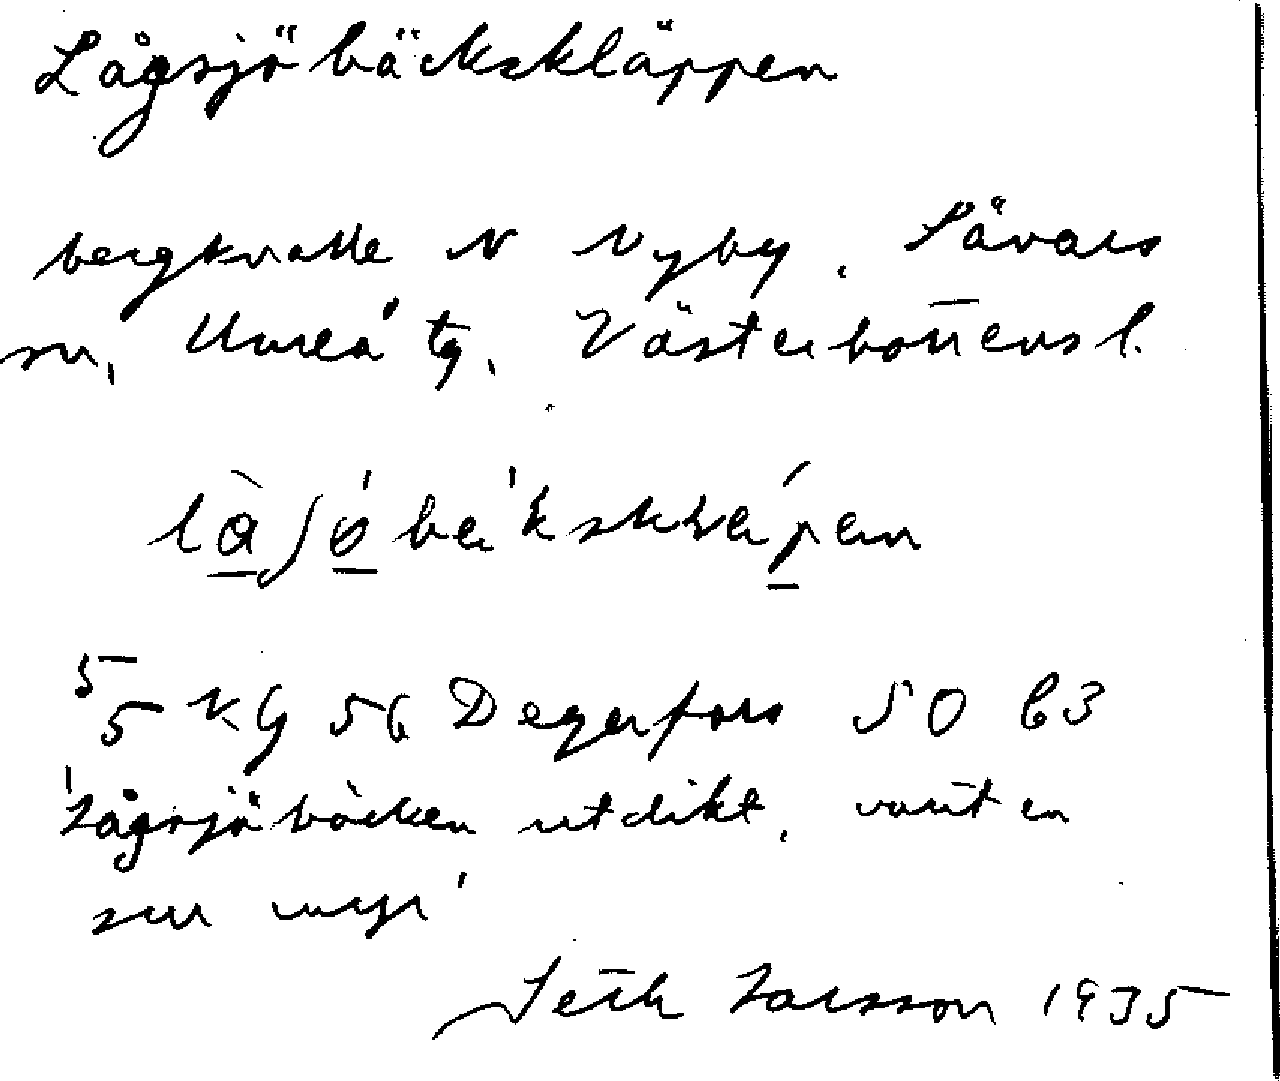 Lågsjöbäckskläppen
bergknalle N Nyby, Sävars
sn, Umeå tg, Västerbottens l.
5 5 NG 56 Degerfors 50 63
'Lågsjöbäcken utdikt, varit en
sur myr'
Seth Larsson 1935